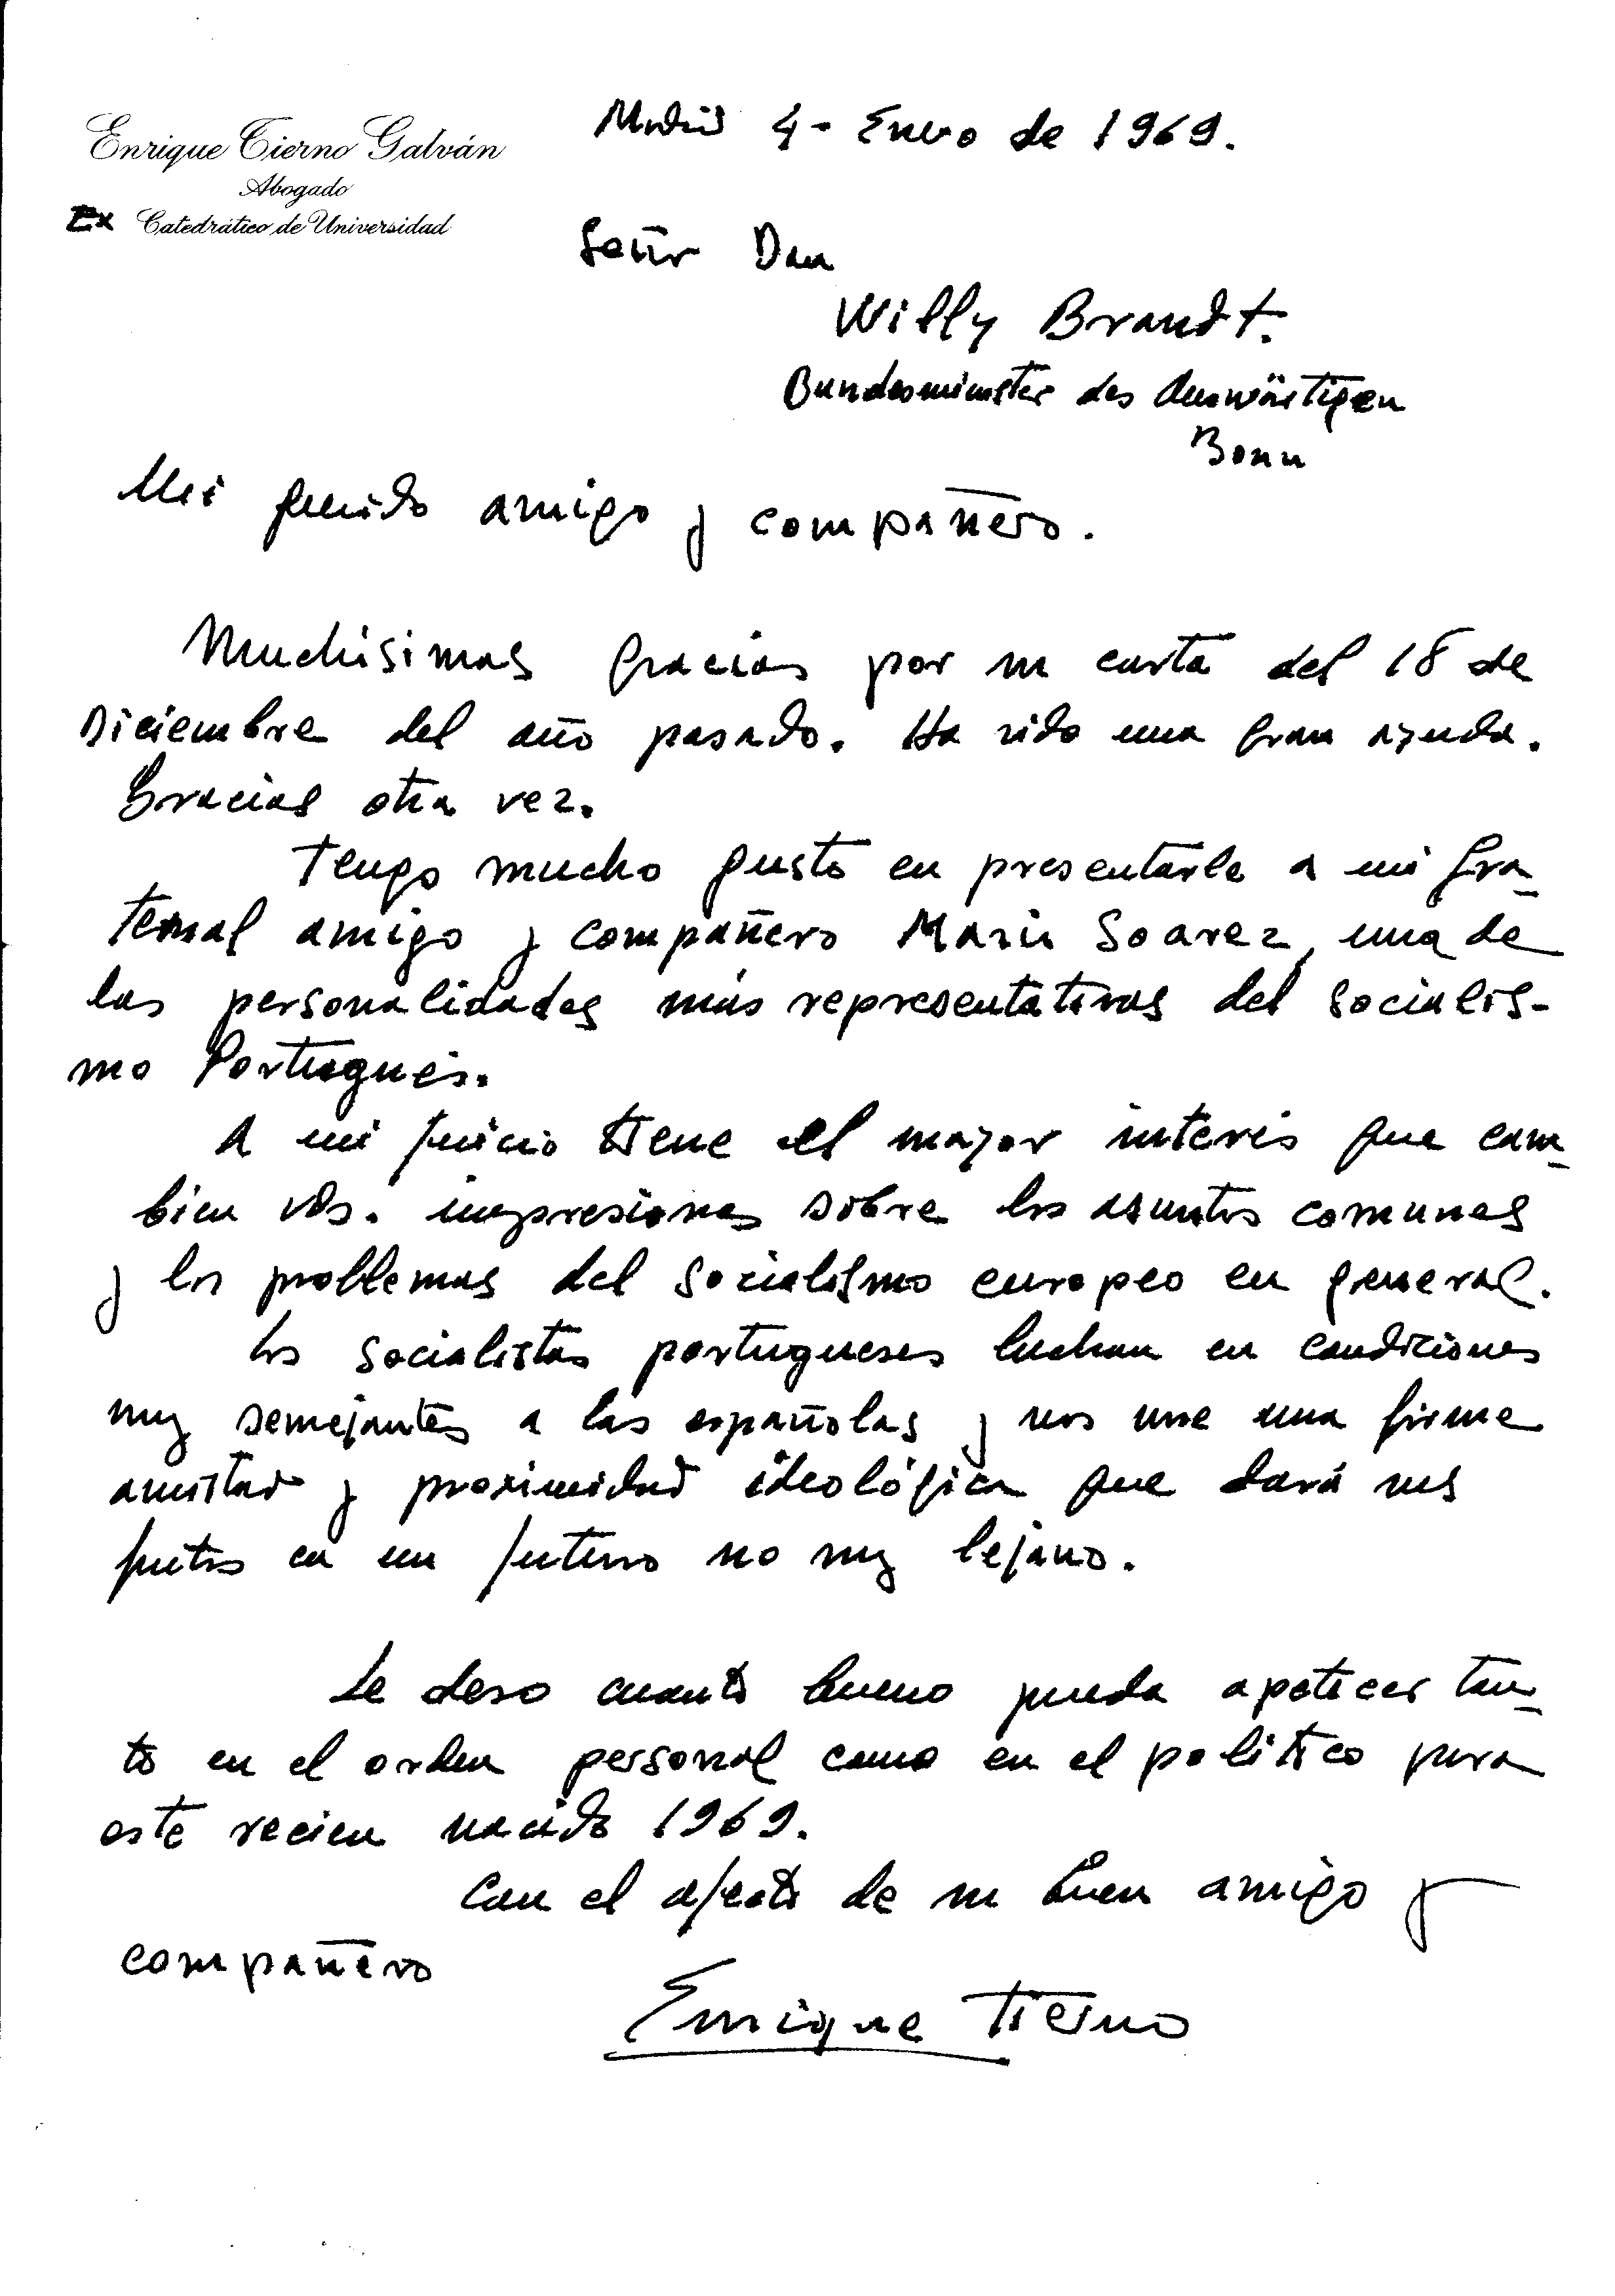 Enrique Tierno Galván
Abogado
Ex Catedrático de Universidad
Madrid 4 - Enero de 1969.
Señor Don
Willy Brandt.
Bundesminister des Auswärtigen
Bonn
Mi querido amigo y compañero.
Muchísimas gracias por su carta del 18 de
Diciembre del año pasado. Ha sido una gran ayuda.
Gracias otra vez.
Tengo mucho gusto en presentarle a mi fra-
ternal amigo y compañero Mario Soarez, una de
las personalidades más representativas del socialis-
mo Portugués.
A mi juicio tiene el mayor interés que cam-
bien Vds. impresiones sobre los asuntos comunes
y los problemas del socialismo europeo en general.
Los socialistas portugueses luchan en condiciones
muy semejantes a las españolas y nos une una firme
amistad y proximidad ideológica que dará sus
frutos en un futuro no muy lejano.
Le deseo cuanto bueno pueda apetecer tan-
to en el orden personal como en el político para
este recien nacido 1969.
Con el afecto de su buen amigo y
compañero
Enrique Tierno